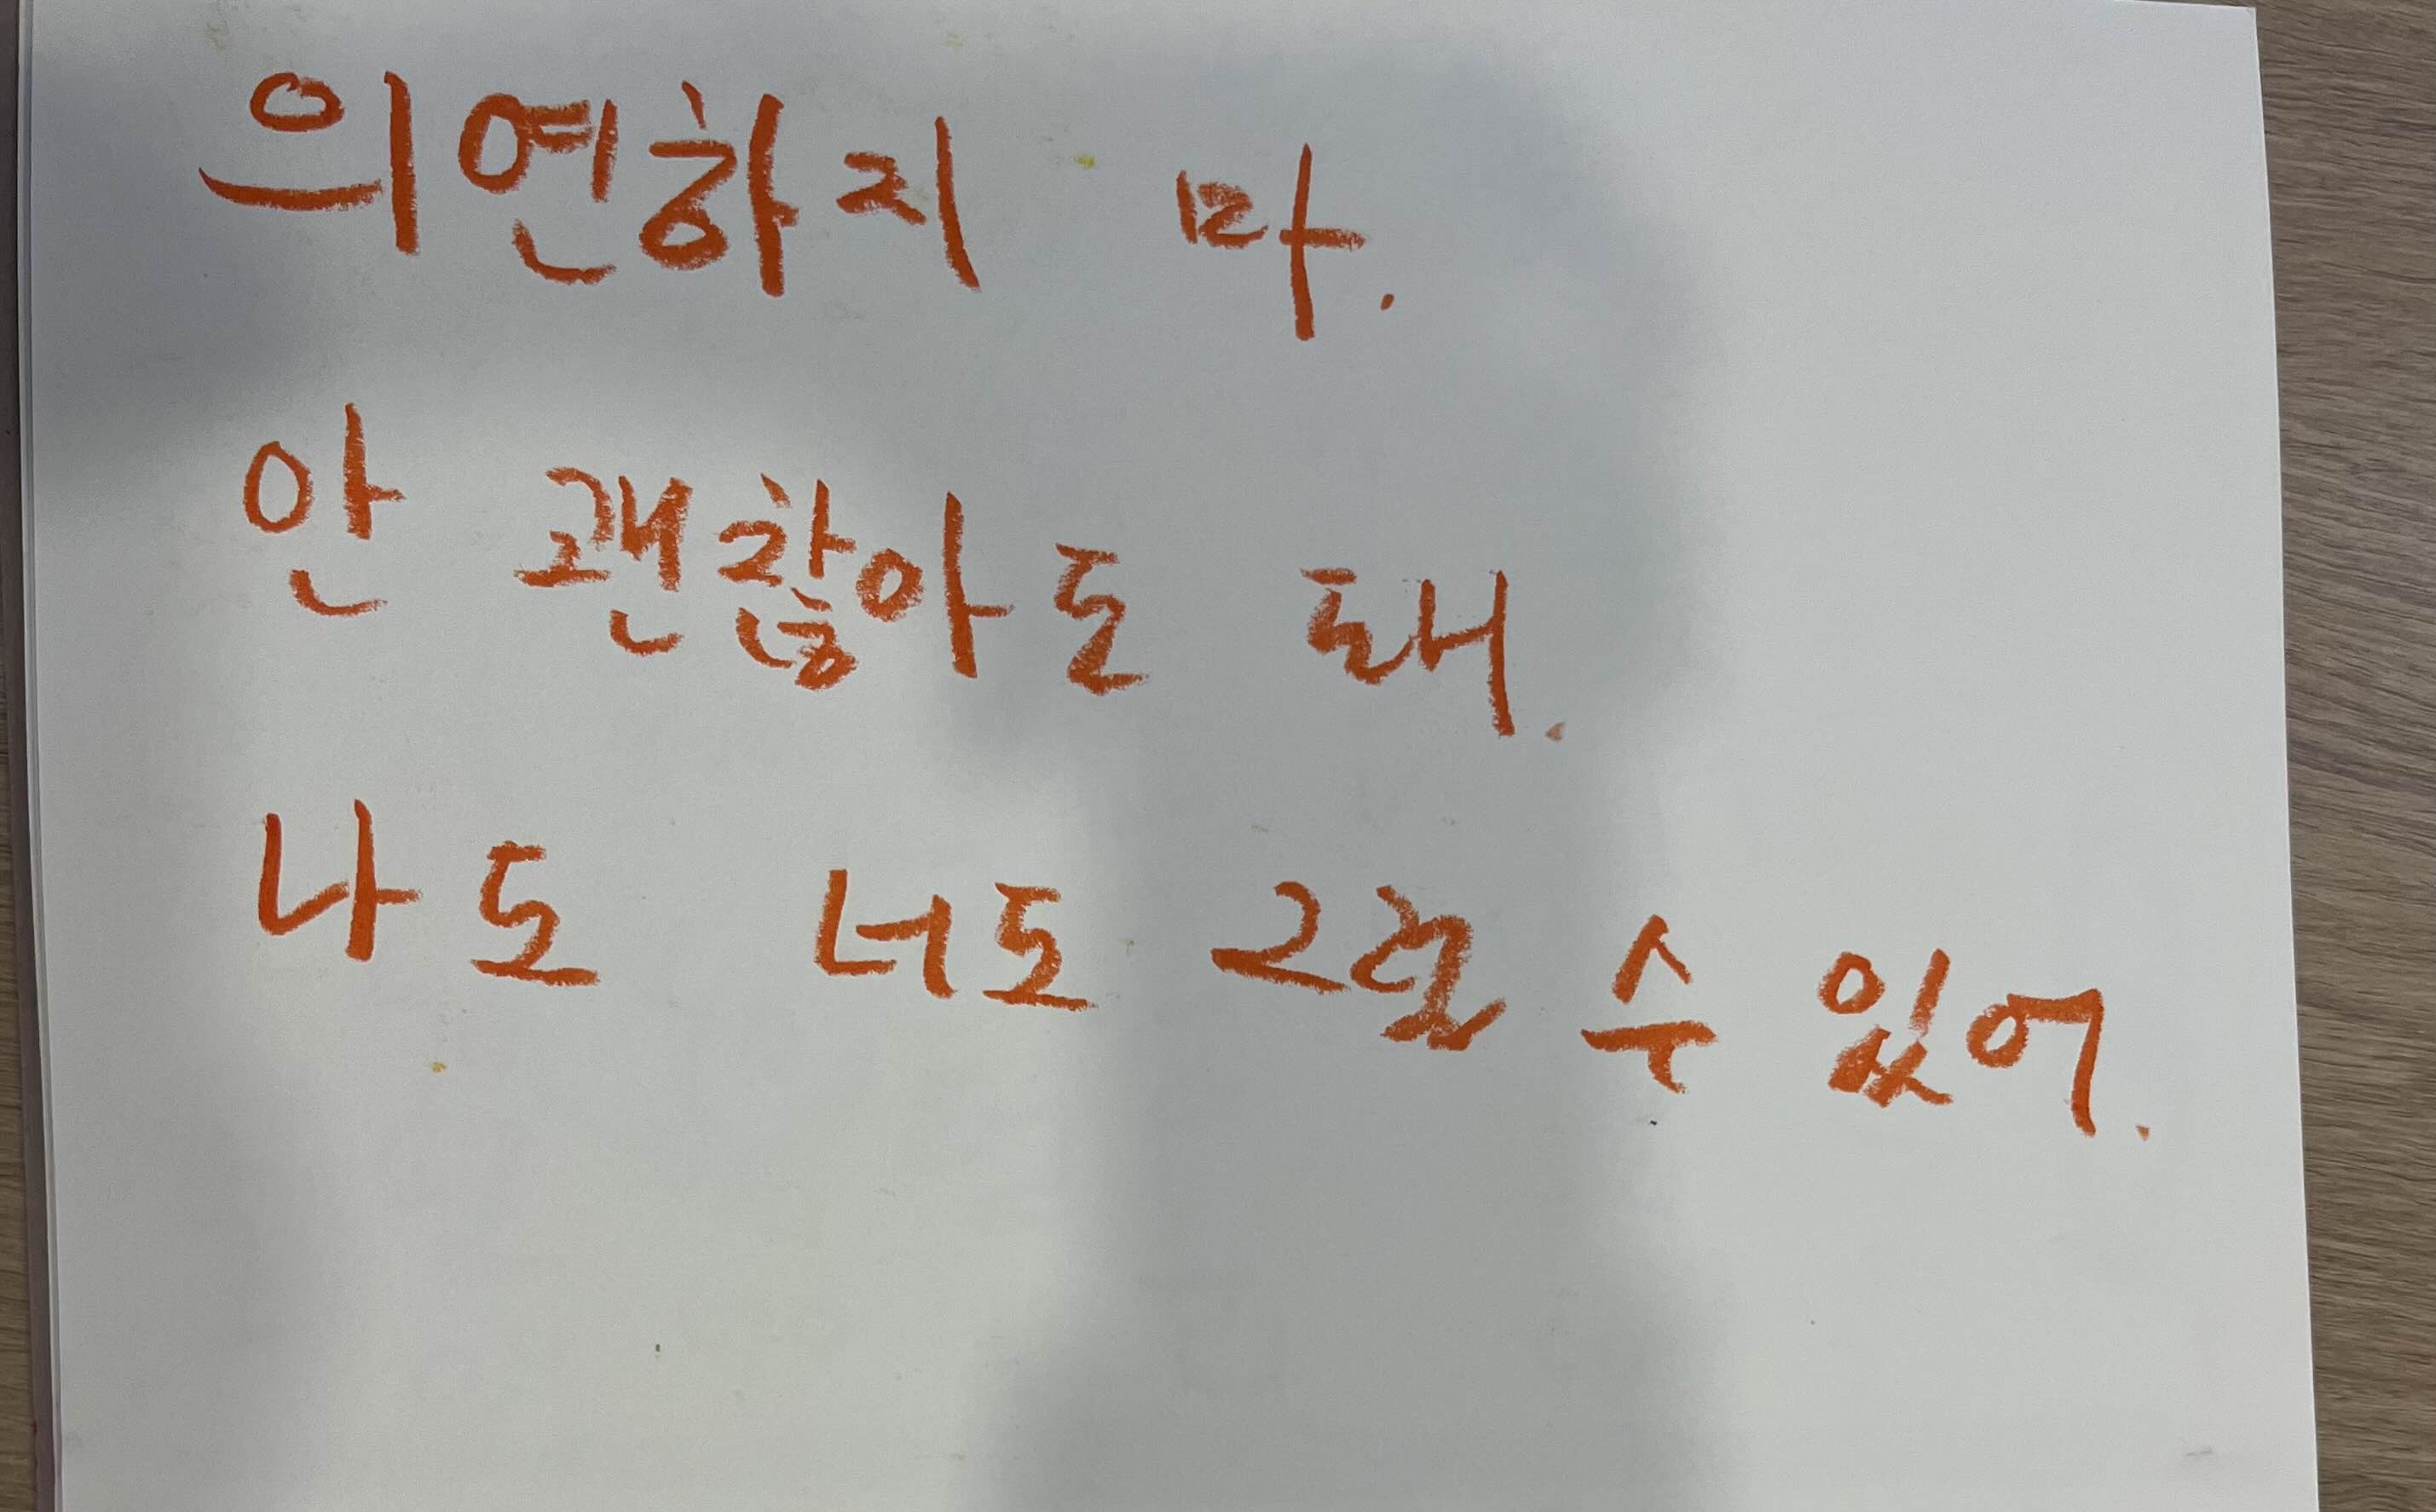 의연하지 마.
안 괜찮아도 돼.
나도 너도 그럴 수 있어.